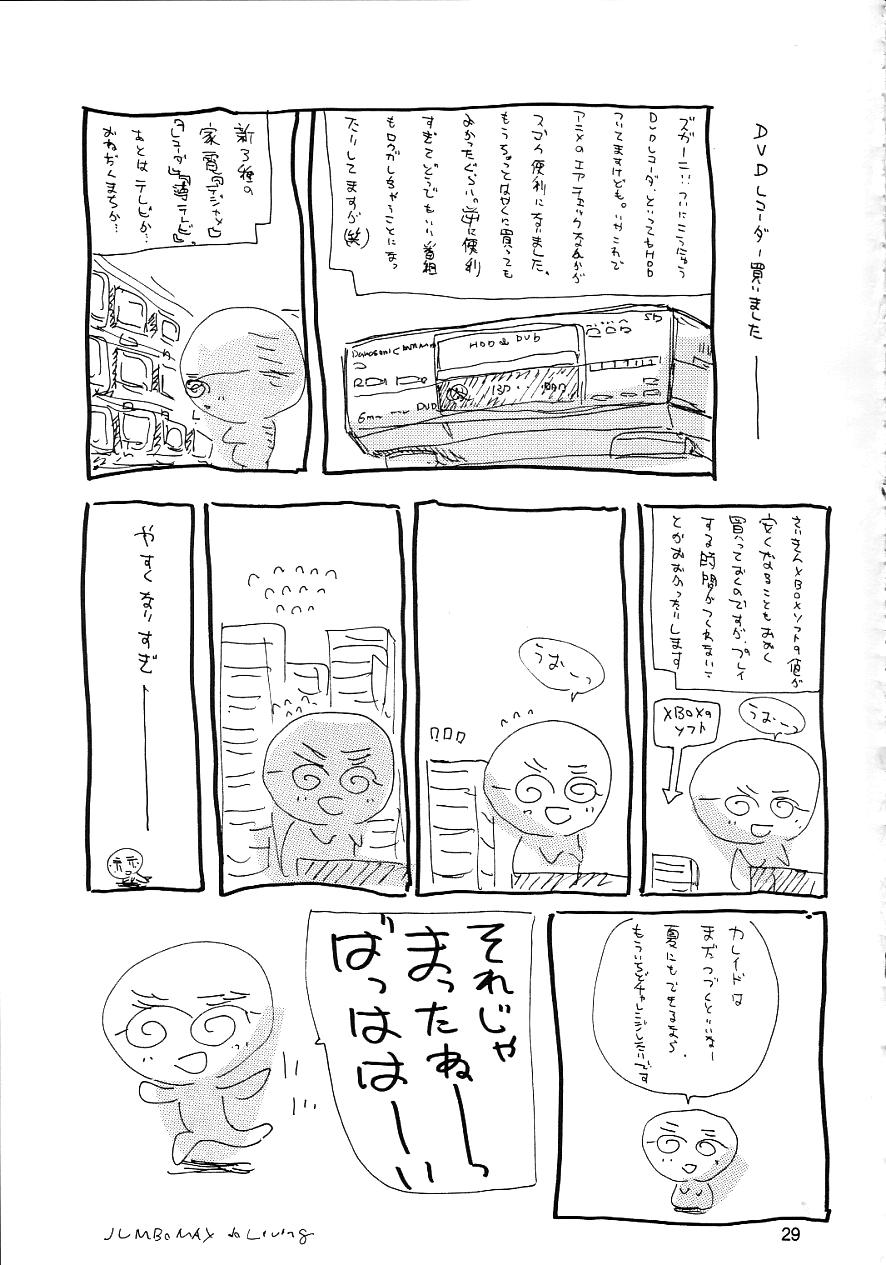 DVDレコーダー買いました――
ズガーン…ついにこうにゅう
DVDレコーダ、といってもHDD
ついてますけども。いやこれで
アニメのエアチェックなんかが
スゴク便利になりました。
もうちょっとはやくに買っても
よかったぐらい。逆に便利
すぎてどうでもいい番組
もロクガしちゃうことになっ
たりしてますが(笑)
HDD & DVD
DVD
新3種の
家電『デジカメ』
『レコーダ』『薄テレビ』、
あとはテレビか…
おねだんくまちか…
さいきんXBOXソフトの値が
安くなることもおおく
買っておくのですが、プレイ
する時間がつくれないこ
とがおおかったりします
うおーっ
XBOXの
ソフト
うおーっ
やすくなりすぎ――
カレイドは
まだつづくといいなー
夏にもできるなら、
もういちどチャレンジしたいです
それじゃ
まったねーっ
ばっははーい
JUMBOMAX do Living
29